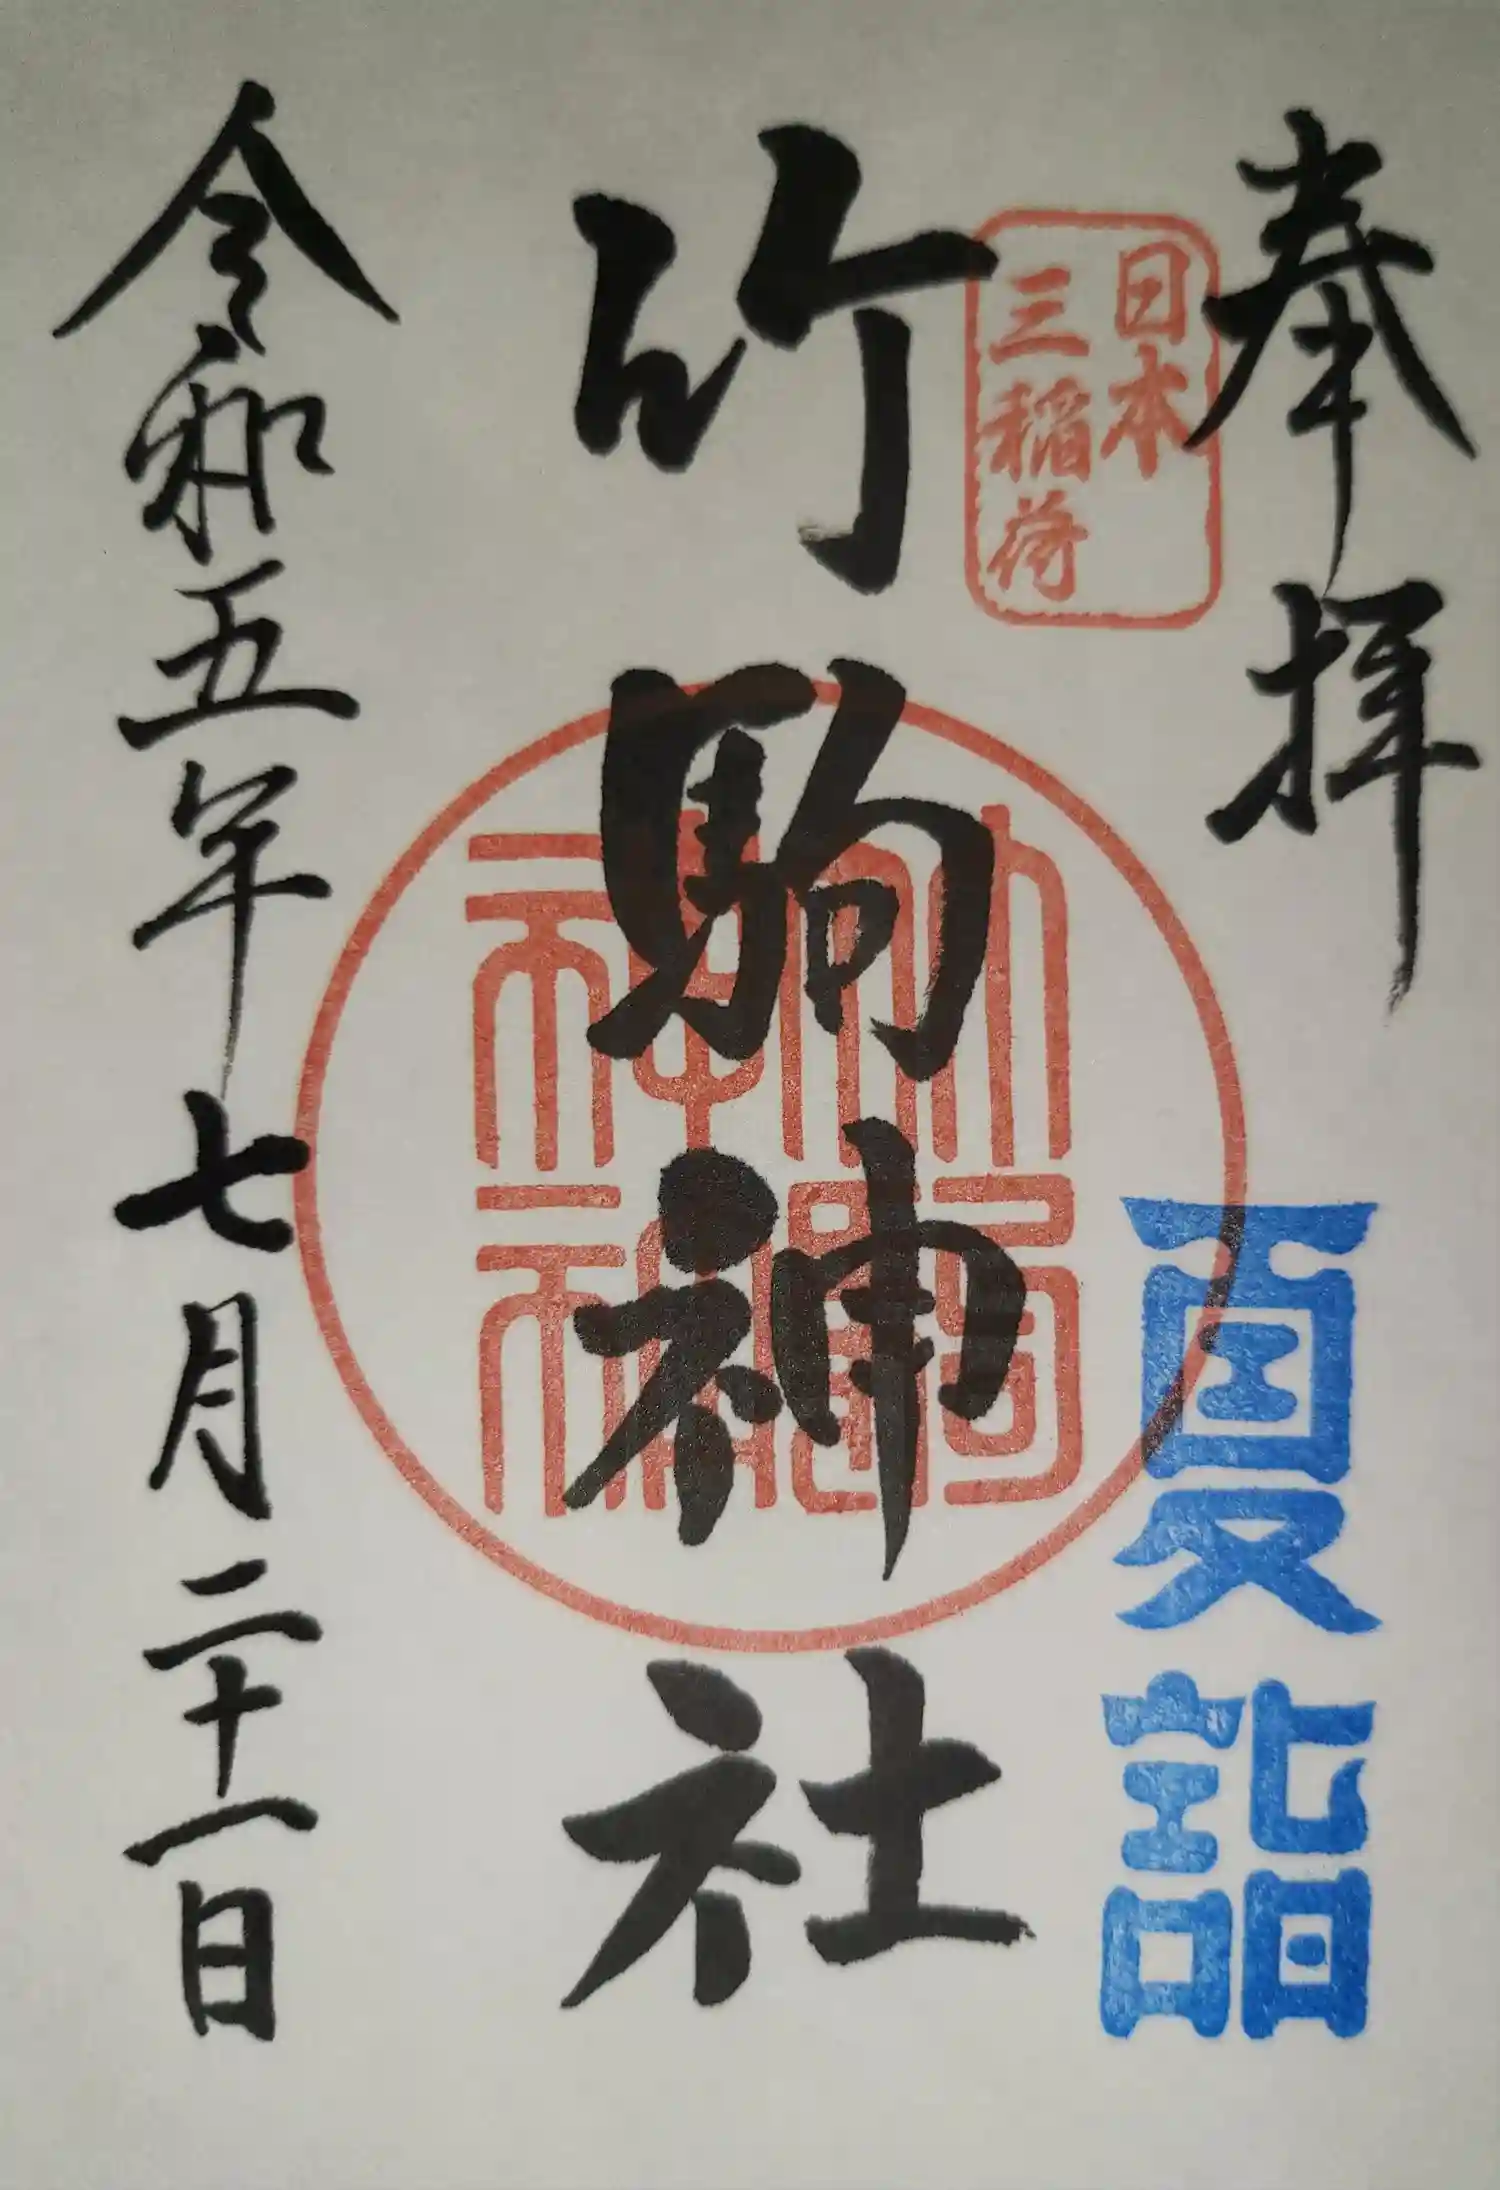 奉拝
日本
三稲荷
夏詣
竹駒神社
竹駒
神社
令和五年七月二十一日